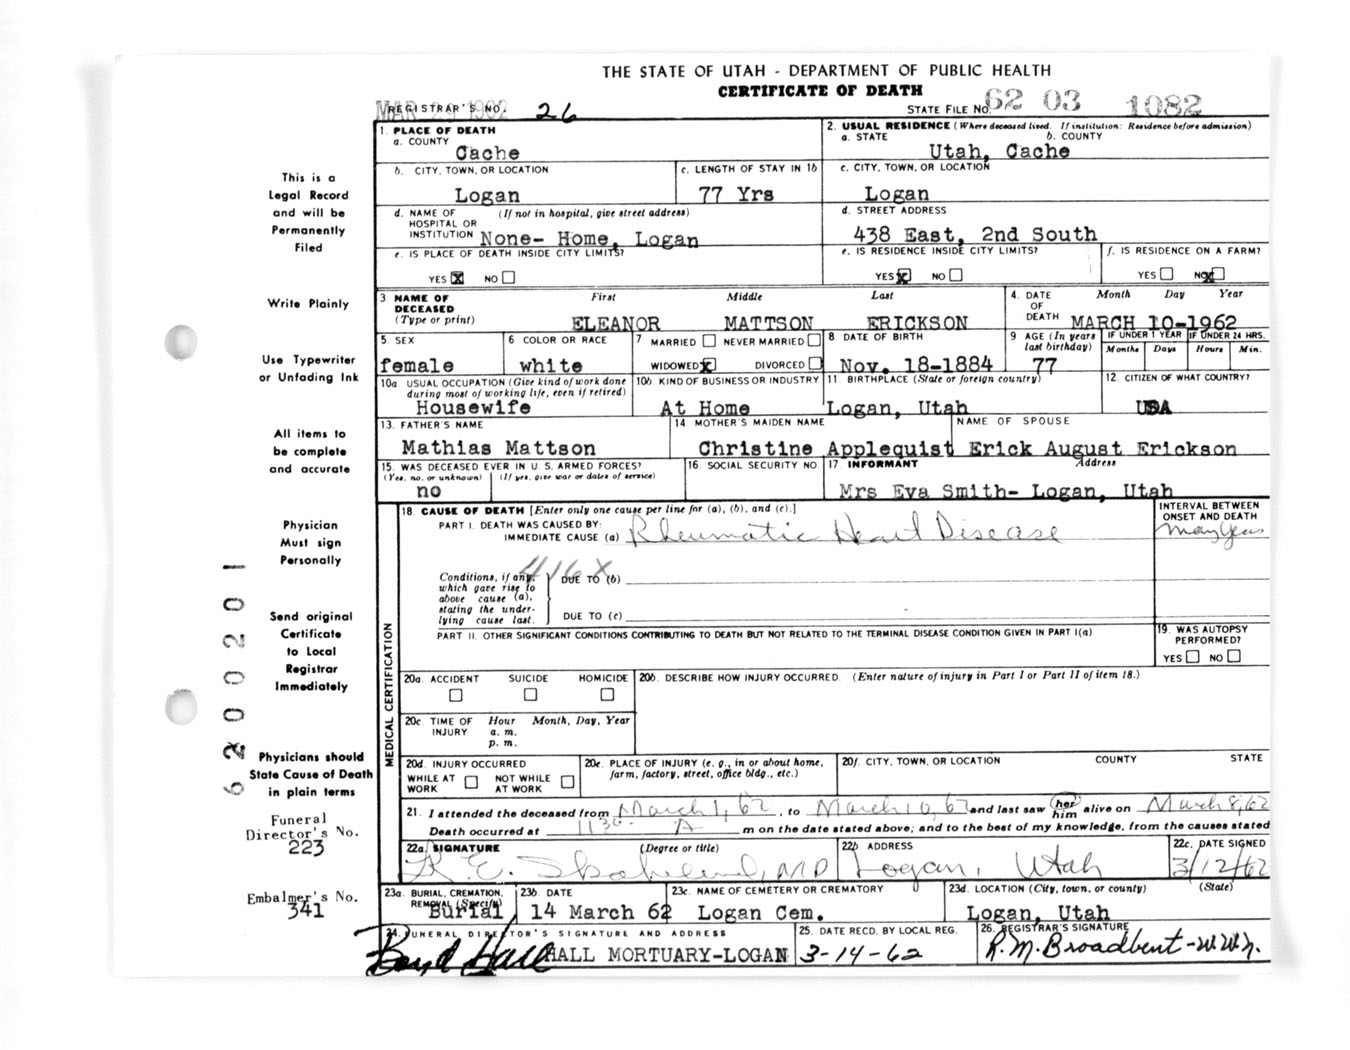 THE STATE OF UTAH - DEPARTMENT OF PUBLIC HEALTH
CERTIFICATE OF DEATH
REGISTRAR'S NO. 26 STATE FILE NO. 62 03 1082
1. PLACE OF DEATH 2. USUAL RESIDENCE (Where deceased lived. If institution: Residence before admission)
a. COUNTY Cache a. STATE Utah, b. COUNTY Cache
b. CITY, TOWN, OR LOCATION Logan c. LENGTH OF STAY IN 1b 77 Yrs c. CITY, TOWN, OR LOCATION Logan
d. NAME OF HOSPITAL OR INSTITUTION (If not in hospital, give street address) None- Home, Logan d. STREET ADDRESS 438 East, 2nd South
e. IS PLACE OF DEATH INSIDE CITY LIMITS? e. IS RESIDENCE INSIDE CITY LIMITS? f. IS RESIDENCE ON A FARM?
YES X NO YES X NO YES NO X
3. NAME OF DECEASED (Type or print) First Middle Last 4. DATE OF DEATH Month Day Year
ELEANOR MATTSON ERICKSON MARCH 10-1962
5. SEX female 6 COLOR OR RACE white 7 MARRIED NEVER MARRIED WIDOWED X DIVORCED 8. DATE OF BIRTH Nov. 18-1884 9 AGE (In years last birthday) 77 IF UNDER 1 YEAR Months Days IF UNDER 24 HRS. Hours Min.
10a. USUAL OCCUPATION (Give kind of work done during most of working life, even if retired) Housewife 10b. KIND OF BUSINESS OR INDUSTRY At Home 11. BIRTHPLACE (State or foreign country) Logan, Utah 12. CITIZEN OF WHAT COUNTRY? USA
13. FATHER'S NAME Mathias Mattson 14 MOTHER'S MAIDEN NAME Christine Applequist NAME OF SPOUSE Erick August Erickson
15. WAS DECEASED EVER IN U. S. ARMED FORCES? (Yes, no, or unknown) no (If yes, give war or dates of service) 16. SOCIAL SECURITY NO. 17. INFORMANT Address Mrs Eva Smith- Logan, Utah
18. CAUSE OF DEATH [Enter only one cause per line for (a), (b), and (c).] INTERVAL BETWEEN ONSET AND DEATH
PART I. DEATH WAS CAUSED BY:
IMMEDIATE CAUSE (a) Rheumatic Heart Disease Many Years
416X
Conditions, if any, which gave rise to above cause (a), stating the underlying cause last. DUE TO (b)
DUE TO (c)
PART II. OTHER SIGNIFICANT CONDITIONS CONTRIBUTING TO DEATH BUT NOT RELATED TO THE TERMINAL DISEASE CONDITION GIVEN IN PART I(a) 19. WAS AUTOPSY PERFORMED? YES NO
MEDICAL CERTIFICATION
20a. ACCIDENT SUICIDE HOMICIDE 20b. DESCRIBE HOW INJURY OCCURRED. (Enter nature of injury in Part I or Part II of item 18.)
20c. TIME OF INJURY Hour a. m. p. m. Month, Day, Year
20d. INJURY OCCURRED WHILE AT WORK NOT WHILE AT WORK 20e. PLACE OF INJURY (e. g., in or about home, farm, factory, street, office bldg., etc.) 20f. CITY, TOWN, OR LOCATION COUNTY STATE
21. I attended the deceased from March 1, 62, to March 10, 62 and last saw her him alive on March 8, 62
Death occurred at 1130 A m on the date stated above; and to the best of my knowledge, from the causes stated
22a. SIGNATURE (Degree or title) MD 22b. ADDRESS Logan, Utah 22c. DATE SIGNED 3/12/62
23a. BURIAL, CREMATION, REMOVAL (Specify) Burial 23b. DATE 14 March 62 23c. NAME OF CEMETERY OR CREMATORY Logan Cem. 23d. LOCATION (City, town, or county) (State) Logan, Utah
24. FUNERAL DIRECTOR'S SIGNATURE AND ADDRESS Boyd Hall HALL MORTUARY-LOGAN 25. DATE RECD. BY LOCAL REG. 3-14-62 26. REGISTRAR'S SIGNATURE R. M. Broadbent - W.W.N.
This is a
Legal Record
and will be
Permanently
Filed
Write Plainly
Use Typewriter
or Unfading Ink
All items to
be complete
and accurate
Physician
Must sign
Personally
Send original
Certificate
to Local
Registrar
Immediately
Physicians should
State Cause of Death
in plain terms
Funeral
Director's No.
223
Embalmer's No.
341